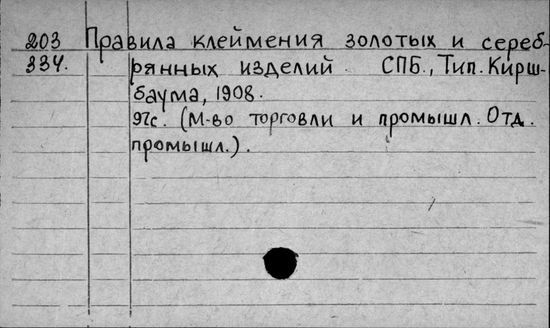 203 Правила клеймения золотых и сереб-
334. рянных изделий СПБ., Тип. Кирш-
баума, 1908.
97с. (М-во торговли и промышл. Отд.
промышл.).